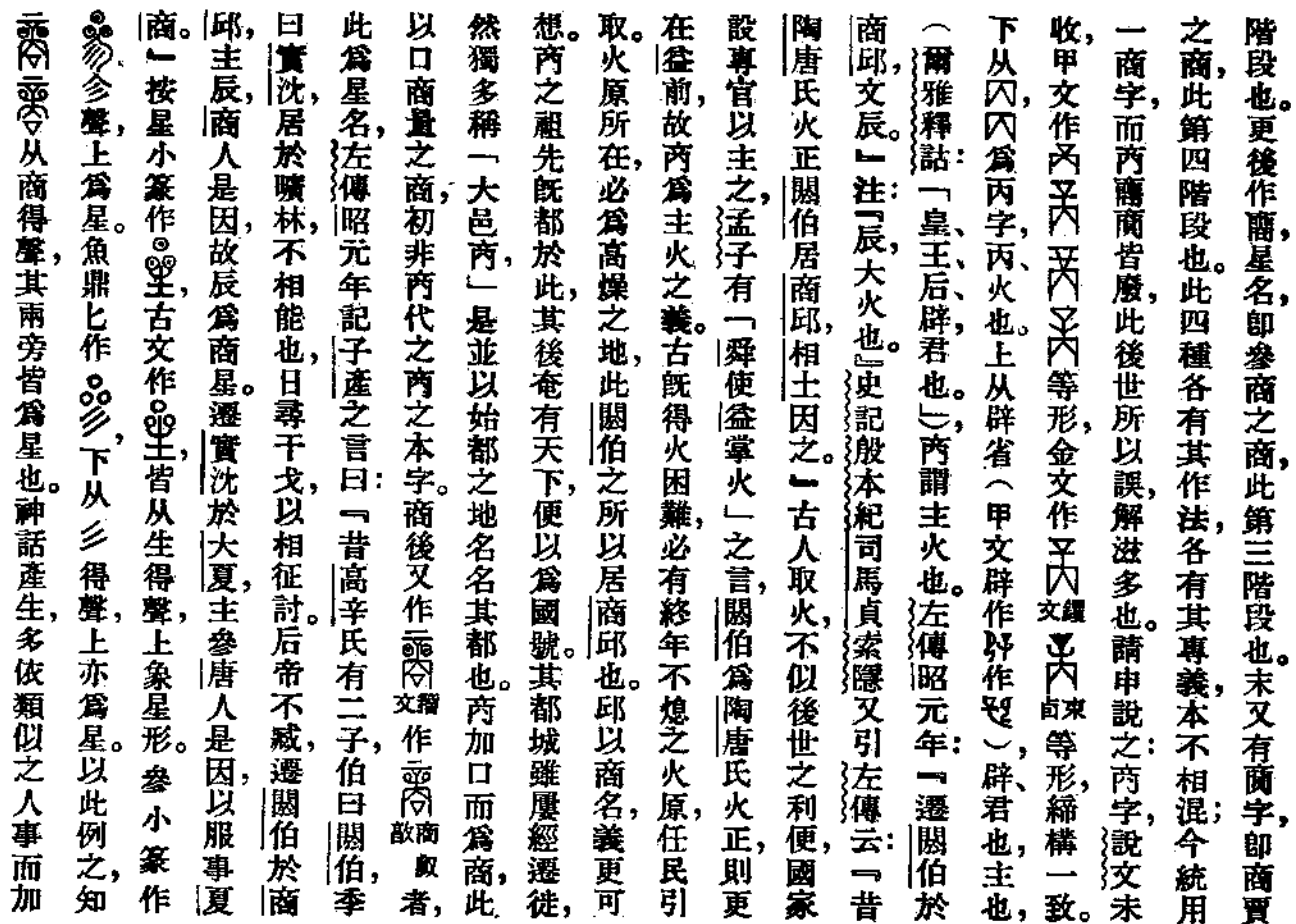 階段也。更後作𠾃,星名,卽參商之商,此第三階段也。末又有賣字,卽商賈
之商,此第四階段也。此四種各有其作法,各有其專義,本不相混;今統用
一商字,而㕯皆廢,此後世所以誤解滋多也。請申說之:㕯字,說文未
收,甲文作等形,金文作等形,締構一致。
下从,爲丙字,丙、火也。上从辟省(甲文辟作作),辟、君也,主也,
(爾雅釋詁:「皇、王、后、辟,君也。」),㕯謂主火也。左傳昭元年:『遷閼伯於
商邱,文辰。』注:『辰,大火也。』史記殷本紀司馬貞索隱又引左傳云:『昔
陶唐氏火正閼伯居商邱,相土因之。』古人取火,不似後世之利便,國家
設專官以主之,孟子有「舜使益掌火」之言,閼伯爲陶唐氏火正,則更
在益前,故㕯爲主火之義。古旣得火困難,必有終年不熄之火原,任民引
取。火原所在,必爲高燥之地,此閼伯之所以居商邱也。邱以商名,義更可
想。㕯之祖先旣都於此,其後奄有天下,便以爲國號。其都城雖屢經遷徙,
然獨多稱「大邑㕯,」是並以始都之地名名其都也。㕯加口而爲商,此
以口商量之商,初非㕯代之㕯之本字。商後又作籀文作商𠭯者,
此爲星名,左傳昭元年記子產之言曰:『昔高辛氏有二子,伯曰閼伯,季
曰實沈,居於曠林,不相能也,日尋干戈,以相征討。后帝不臧,遷閼伯於商
邱,主辰,商人是因,故辰爲商星。遷實沈於大夏,主參,唐人是因,以服事夏
商。』按星小篆作,古文作,皆从生得聲,上象星形。參小篆作
聲,上爲星。魚鼎匕作,下从彡得聲,上亦爲星。以此例之,知
从商得聲,其兩旁皆爲星也。神話產生,多依類似之人事而加